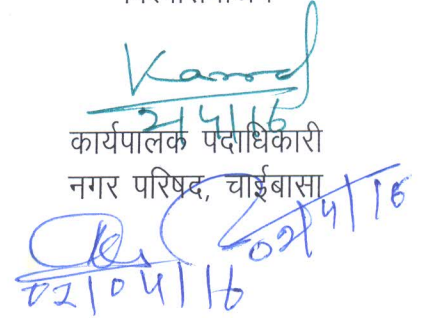 2/4/16
कार्यपालक पदाधिकारी
नगर परिषद, चाईबासा
02/4/16
02/04/16